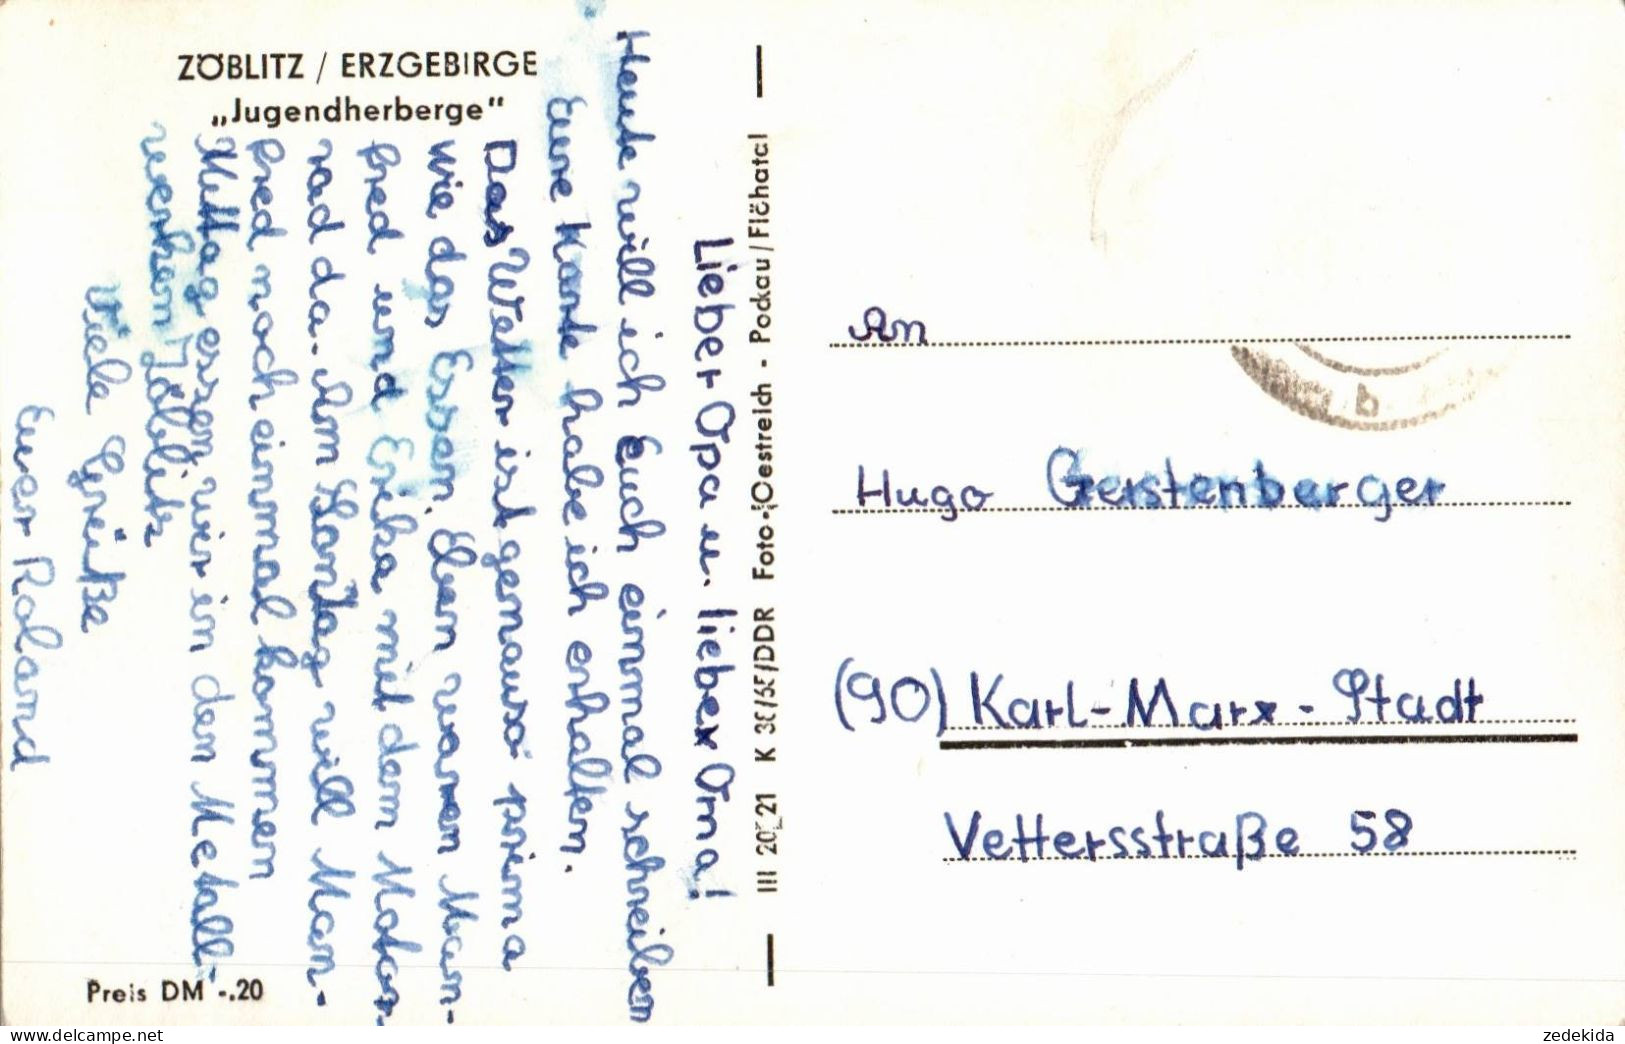 ZÖBLITZ / ERZGEBIRGE
„Jugendherberge"
Lieber Opa u. liebex Oma!
Heute will ich Euch einmal schreiben
Eure Karte habe ich erhalten.
Das Wetter ist genauso prima
wie das Essen. Eben waren Man-
fred und Erika mit dem Motor-
rad da. Am Sontag will Man-
fred noch einmal kommen
Mittag essen wir in den Metall-
werken Zöblitz
Viele Grüße
Euer Roland
Preis DM -.20
III 20 21 K 3/65/DDR Foto-Oestreich - Pockau/Flöhatal
An
b
Hugo Gerstenberger
(90) Karl-Marx-Stadt
Vettersstraße 58
zedekida